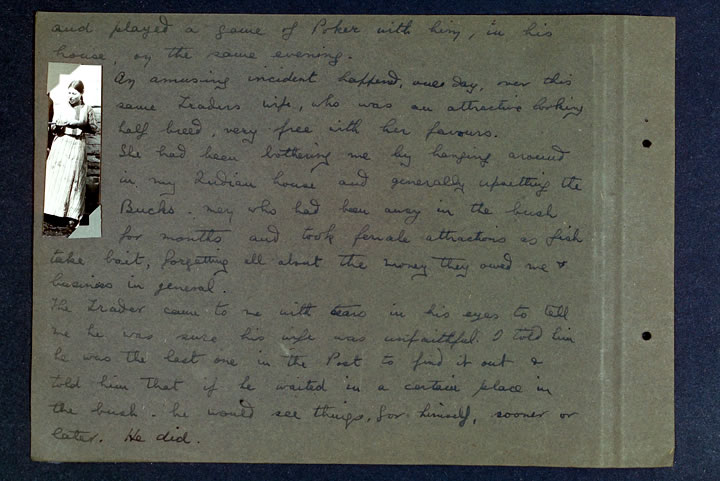 and played a game of Poker with him, in his
house, on the same evening.
An amusing incident happend, one day, over this
same Traders wife, who was an attractive looking
half breed, very free with her favours.
She had been bothering me by hanging around
in my Indian house and generally upsetting the
Bucks. men who had been away in the bush
for months and took female attractions as fish
take bait, forgetting all about the money they owed me &
business in general.
The Trader came to me with tears in his eyes to tell
me he was sure his wife was unfaithful. I told him
he was the last one in the Post to find it out &
told him that if he waited in a certain place in
the bush. he would see things, for himself, sooner or
later. He did.